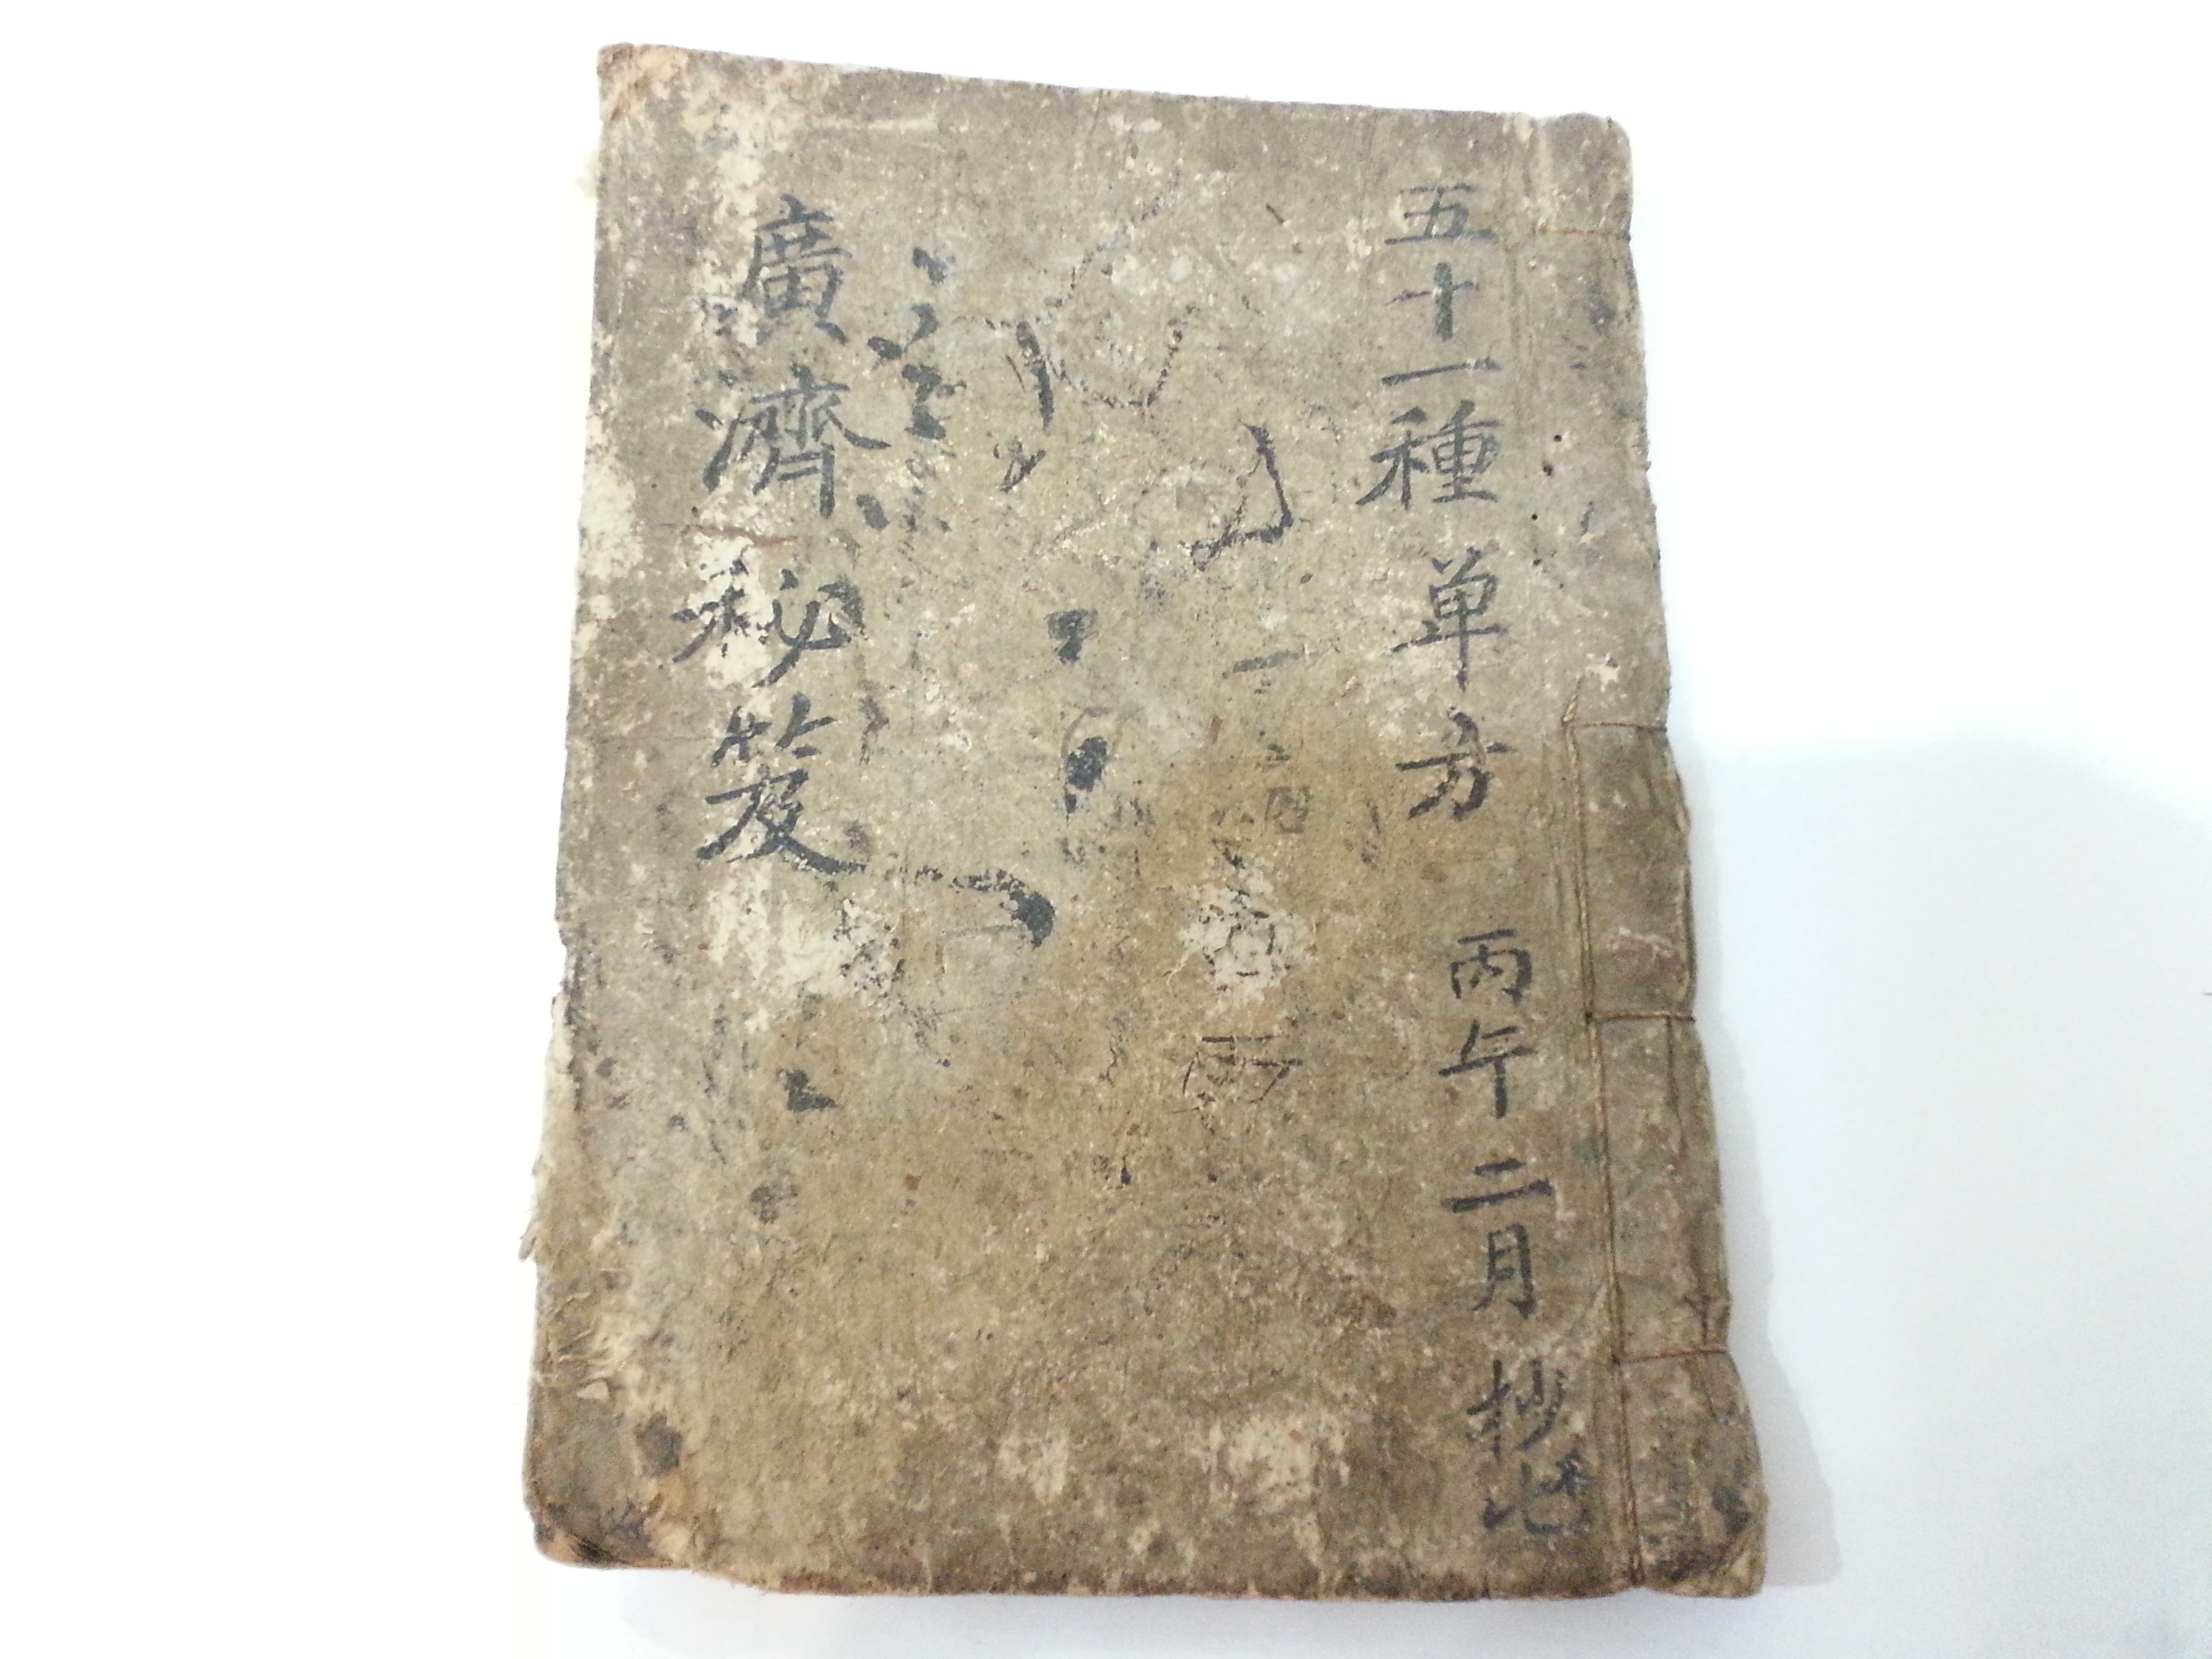 五十一種単方 丙午二月抄
廣濟秘笈